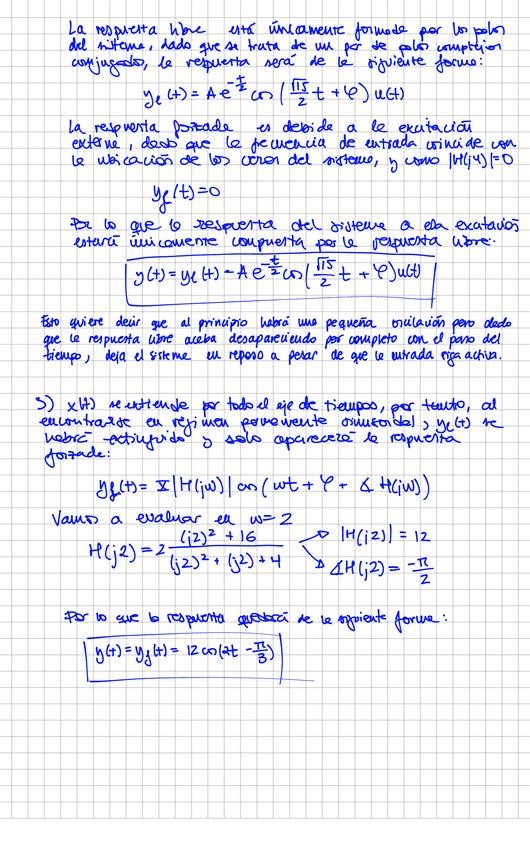 La respuesta libre está únicamente formada por los polos
del sistema, dado que se trata de un par de polos complejos
conjugados, la respuesta será de la siguiente forma:
y_l(t) = A e^{-t/2} cos(√15/2 t + φ) u(t)
La respuesta forzada es debida a la excitación
externa, dado que la frecuencia de entrada coincide con
la ubicación de los ceros del sistema, y como |H(j4)|=0
y_f(t)=0
Por lo que la respuesta del sistema a esta excitación
estará únicamente compuesta por la respuesta libre:
y(t) = y_l(t) = A e^{-t/2} cos(√15/2 t + φ) u(t)
Esto quiere decir que al principio habrá una pequeña oscilación pero dado
que la respuesta libre acaba desapareciendo por completo con el paso del
tiempo, deja el sistema en reposo a pesar de que la entrada siga activa.
3) x(t) se extiende por todo el eje de tiempos, por tanto, al
encontrarse en régimen permanente sinusoidal, y_l(t) se
habrá extinguido y solo aparecerá la respuesta
forzada:
y_f(t) = X |H(jω)| cos(ωt + φ + ∡ H(jω))
Vamos a evaluar en ω=2
H(j2) = 2 ((j2)² + 16)/((j2)² + (j2) + 4) → |H(j2)| = 12
∡H(j2) = -π/2
Por lo que la respuesta quedará de la siguiente forma:
y(t) = y_f(t) = 12 cos(2t - π/3)